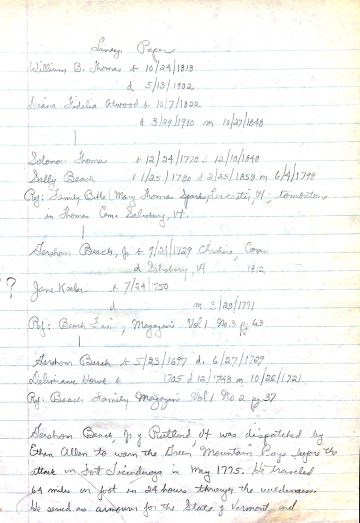 Lineage Paper
William B. Thomas b 10/24/1818
d 5/13/1902
Diana Fidelia Atwood b 10/7/1822
d 3/29/1910 m 10/27/1848
Solomon Thomas b 12/24/1770 d 12/10/1848
Sally Beach b 1/25/1780 d 2/25/1859 m 6/4/1798
Ref: Family Bible Mary Thomas Sparks, Leicester, Vt, tombstone
in Thomas Cem. Salisbury, Vt.
Gershom Beach, Jr b 9/21/1729 Cheshire, Conn
d Salisbury, Vt 1812
? Jane b 7/24/1750
d m 3/28/1771
Ref: Beach Fam, Magazine Vol 1 No. 3 pg 63
Gershom Beach b 5/23/1697 d. 6/27/1769
Deliverance Howe b 1705 d 12/1748 m 10/26/1721
Ref: Beach Family Magazine Vol 1 No 2 pg 37
Gershom Beach, Jr of Rutland Vt was dispatched by
Ethan Allen to warn the Green Mountain Boys before the
attack on Fort Ticonderoga in May 1775. He traveled
64 miles on foot in 24 hours through the wilderness.
He served as armourer for the State of Vermont and